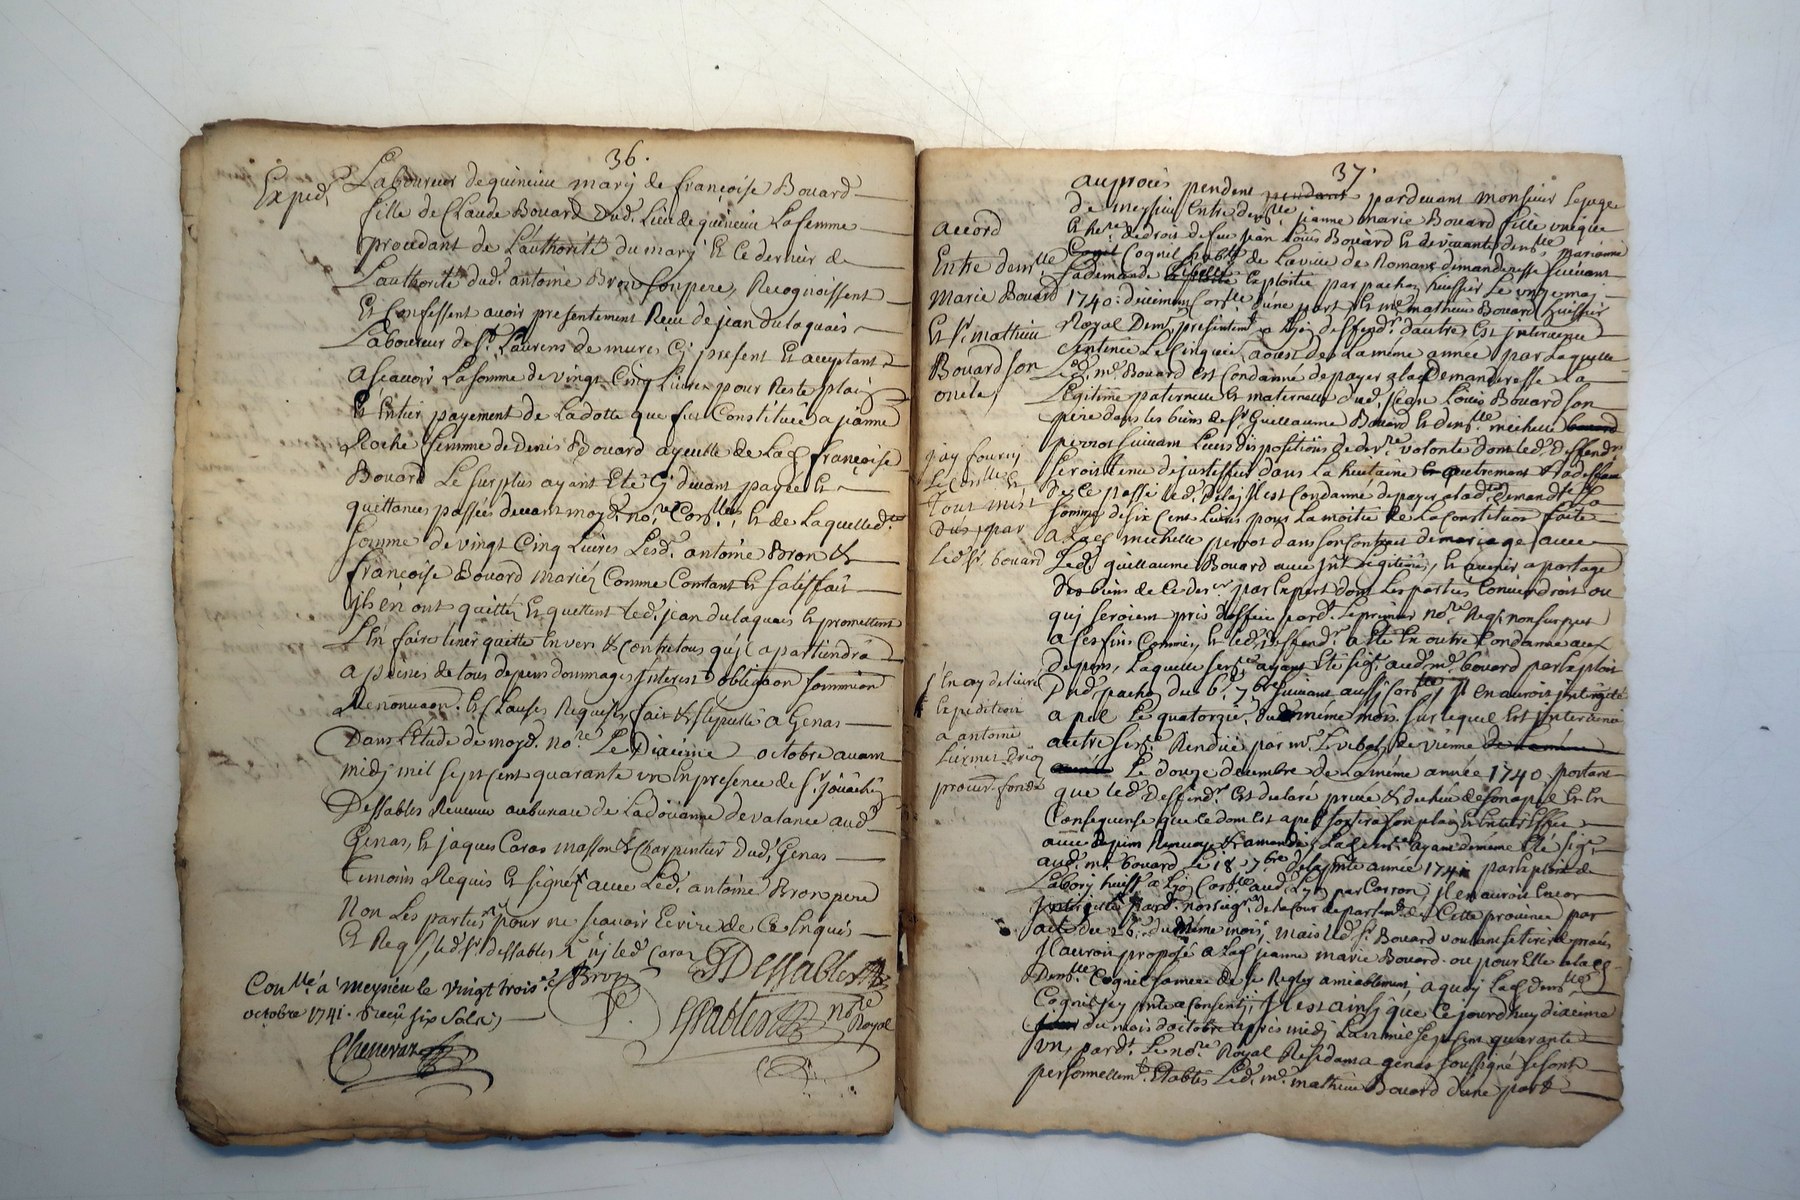 36.
Exped.
Laboureur de quincieu mary de françoise Bouard
fille de Claude Bouard dud. Lieu de quincieu La femme
procedant de L'authorité du mary Et ce dernier de
L'authorité dud. antoine Bron son pere, Recognoissent
Et Confessent avoir presentement Receu de jean dulaquais
Laboureur de St. Laurens de mures Cy present Et acceptant
a scavoir La somme de vingt Cinq Livres pour Reste plain
Et Entier payement de La dotte que fut Constituée a jeanne
Roche femme de Denis Bouard ayeulle de Lad françoise
Bouard Le surplus ayant Eté Cy devant payée Et
quittances passées devant moyd. nore. Et de Laquelle
somme de vingt Cinq Livres Lesd. antoine Bron &
françoise Bouard mariez Comme Contant Et satisfait
jls en ont quitté Et quittent led. jean dulaquais Et promettent
L'en faire tenir quitte Envers & Contre tous qu'jl apartiendra
a peines de tous depens dommages jnterest obligaon sommion
Renonciaon. Et Clauses Requises fait & stipullé a Genas
Dans L'Etude de moyd. nore. Le Dixième octobre avant
midy mil sept cent quarante un En presence de Sr. joüachin
Dessables Receveur au bureau de La doüanne de valance aud
Genas, Et jaques Caras masson & Charpentier Dud. Genas
Temoins Requis Et signés avec Led. antoine Bron pere
Non Les parties pour ne scavoir Ecrire de ce Enquis
Et Req Led. Sr dessables Led Caras
Bron JDessables
Con.lle á meysieu le vingt trois.e
octobre 1741. Receü six Sols
Dessables nore Royal
Cheneraz
37.
au procès pendent pendant pardevant monsieur Le juge
de meysieu Entre demlle jeanne marie Bouard fille unique
Et here. de droit de feu jean Loüis Bouard Et de vivante demlle marianne
Cognil de La ville de Romans demanderesse suivant
La demande Exploitée par pachoz huissier Le onze may
1740. d'une part Et me mathieu Bouard huissier
Royal Demt. presentemt a deffendr. d'autre, Est jntervenue
sentence Le Cinquie. aoust de La même année, par Laquelle
Led. me. Bouard est Condamné de payer a La Demanderesse La
Legitime paternelle Et maternelle dud. jean Loüis Bouard son
pere dans les biens de Sr. Guilleaume Bouard Et demlle. michelle
perrot suivant Leurs dispositions de dre. volonte dont led. Deffendr
seroit tenu de justiffier dans La huitaine autrement & a deffaut
De ce passé led. Delay jl est Condamné de payer a lad. demandte. La
somme de six Cent Livres pour La moitié de La Constitution faite
a Lad. michelle perrot dans son Contrat de mariage avec
Led. guilleaume Bouard avec Legitime, Et avenir a partage
des biens de ce der. par Expert dont Les parties Conviendroit ou
qui seroient pris d'office pard. Le premier nore. Royl. non suspect
a ces fins Commis, Et led. Deffendr. a Eté En outre Condamné aux
depens, Laquelle sence. ayant Eté sige. aud. me. bouard par Exploit
Dud. pachoz du 6. 7bre suivant aussy jl en auroit jnterjetté
apel Le quatorzie. dud même mois. sur lequel Est jntervenu
autre sence. Rendüe par mr. Le vibaly de vienne
Le douze decembre de La même année 1740. portant
que led. Deffendr. Est declaré privé & decheu de son apel Et En
Consequense que ce dont Est apel sortira son plain Et Entier Effet
avec depens Renvoyé & amende, La sence. ayant de même Eté sige.
aud. me. bouard Le 18. 7bre de La prnte année 1741 par Exploit de
Labory huissr. a jl en auroit Encor
jnterjetté pard. nosseigrs. de La Cour de parlemt. de Cette province par
acte du 26. du même mois, mais led. Sr. Bouard voulant se tirer de procès
jl auroit proposé a Lad jeanne marie Bouard ou pour Elle a Lad
Demlle. Cognil sa mere de se Regler amiablement, a quoy Lad demlle
Cognil sy prnte a Consenty, jl est ainsy que Ce jourd'huy dixième
du mois d'octobre après midy L'an mil sept cent quarante
un, pardt. Le nore. Royal Residant a genas soussigné se sont
personnellemt. Etablis Led. me. mathieu Bouard d'une part
accord
Entre demlle
marie Bouard
Et Sr mathieu
Bouard son
oncle
j'ay fourny
Le Conlle &
Tout m'est
Dus par
Led. Sr. bouard
j'En ay delivré
Expedition
a antoine
procur. fondé